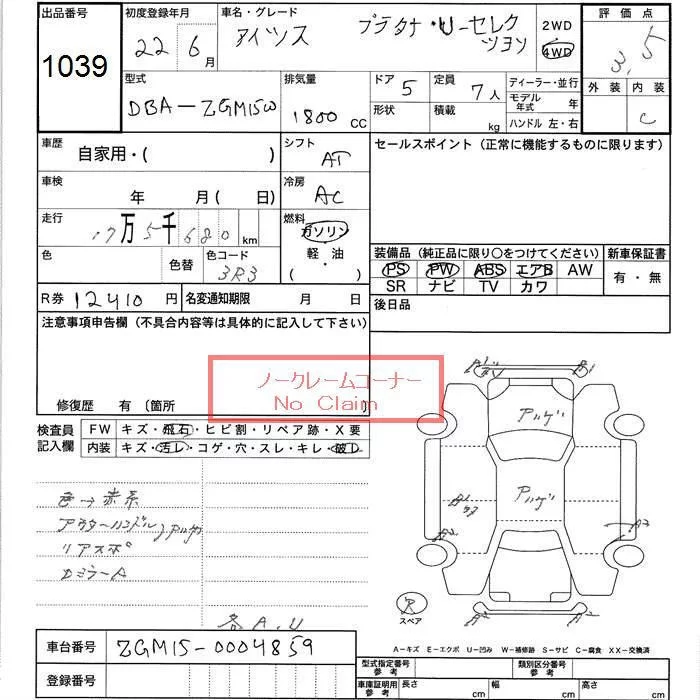 出品番号
1039
初度登録年月
22 6月
車名・グレード
アイシス プラタナ・U-セレク
ツヨン
2WD
4WD
評価点
3,5
外装 内装
C
型式
DBA-ZGM15W
排気量
1800 CC
ドア 5
形状
定員 7人
積載 kg
ディーラー・並行
モデル年式 年
ハンドル 左・右
車歴
自家用・( )
シフト
AT
セールスポイント（正常に機能するものに限ります）
車検
年 月( 日)
冷房
AC
走行
17万5千680 km
燃料
ガソリン
軽・油
( )
色
色替
色コード
3R3
装備品（純正品に限り○をつけてください）
PS PW ABS エアB AW
SR ナビ TV カワ
新車保証書
有・無
R券 12410 円
名変通知期限 月 日
後日品
注意事項申告欄（不具合内容等は具体的に記入して下さい）
ノークレームコーナー
No Claim
修復歴 有（箇所
検査員記入欄
FW キズ・飛石・ヒビ割・リペア跡・X要
内装 キズ・汚レ・コゲ・穴・スレ・キレ・破レ
色→赤系
アウターハンドル
リアスポ
DミラーA
各A.U
アハゲ
アハゲ
A1
A2
A2
A2
A2
R
スペア
A-キズ E-エクボ U-凹み W-補修跡 S-サビ C-腐食 XX-交換済
車台番号
ZGM15-0004859
登録番号
型式指定番号
参考
類別区分番号
参考
車庫証明用
参考
長さ cm
幅 cm
高さ cm